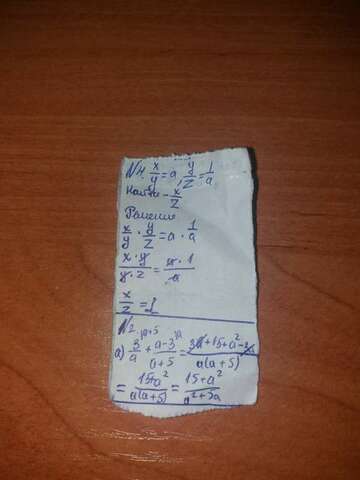 N1. x/y = a, y/z = 1/a
Найти - x/z
Решение
x/y · y/z = a · 1/a
x · y / y · z = a · 1 / a
x/z = 1
N2.
а) 3/a + a-3/a+5 = 3a+15+a²-3a / a(a+5)
= 15+a² / a(a+5) = 15+a² / a²+5a